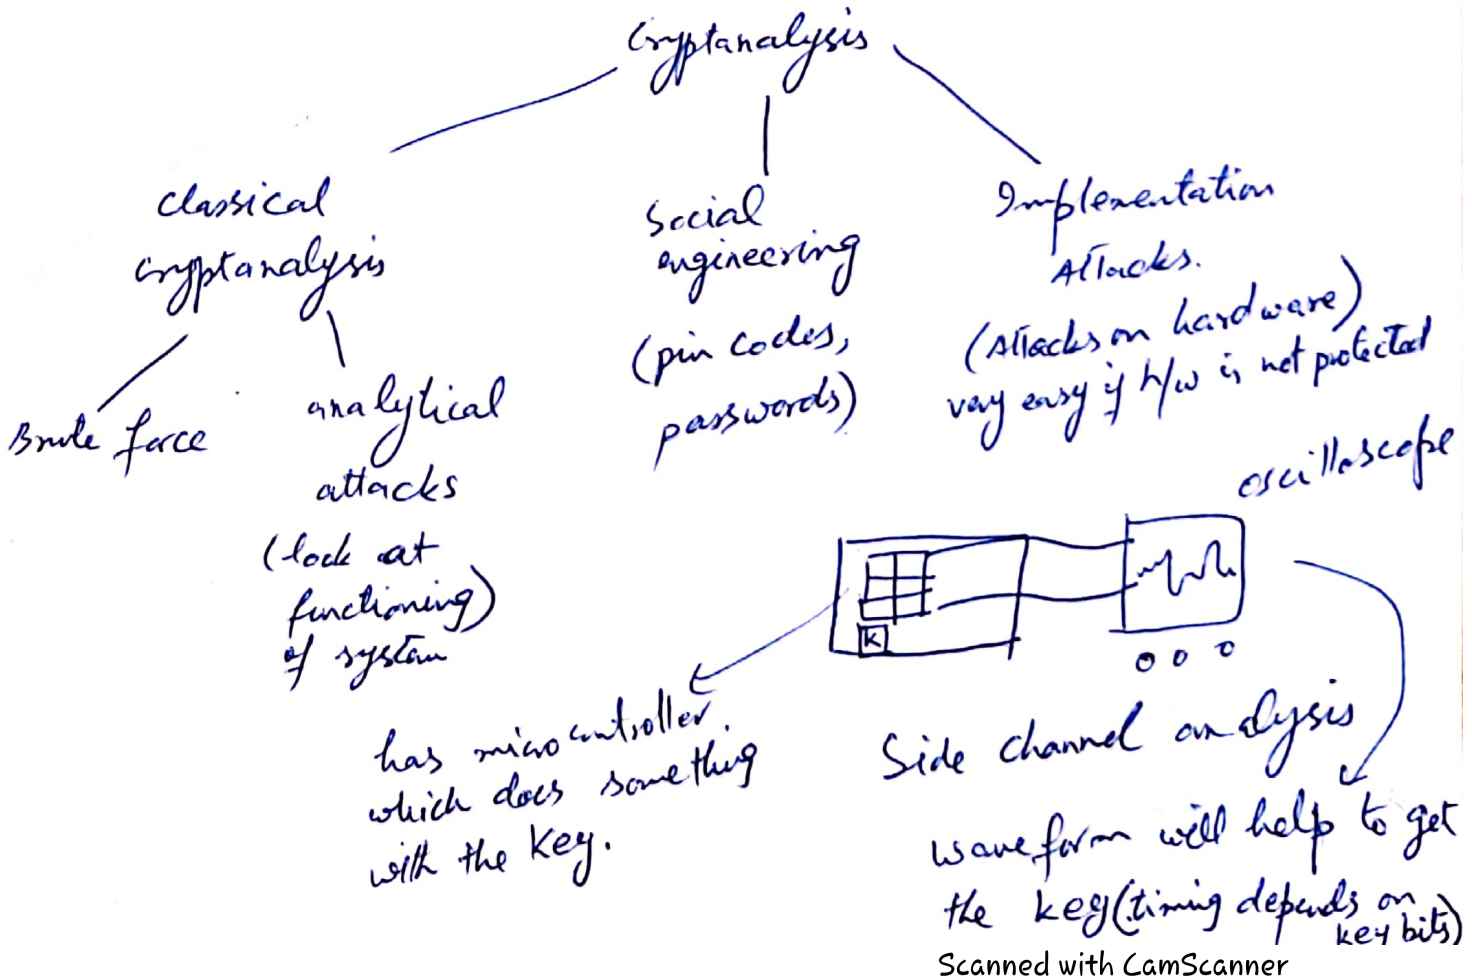 Cryptanalysis
classical
cryptanalysis
Brute force
analytical
attacks
(look at
functioning)
of system
Social
engineering
(pin codes,
passwords)
Implementation
Attacks.
(Attacks on hardware)
very easy if h/w is not protected
oscilloscope
K
has microcontroller.
which does something
with the key.
Side channel analysis
waveform will help to get
the key (timing depends on
key bits)
Scanned with CamScanner